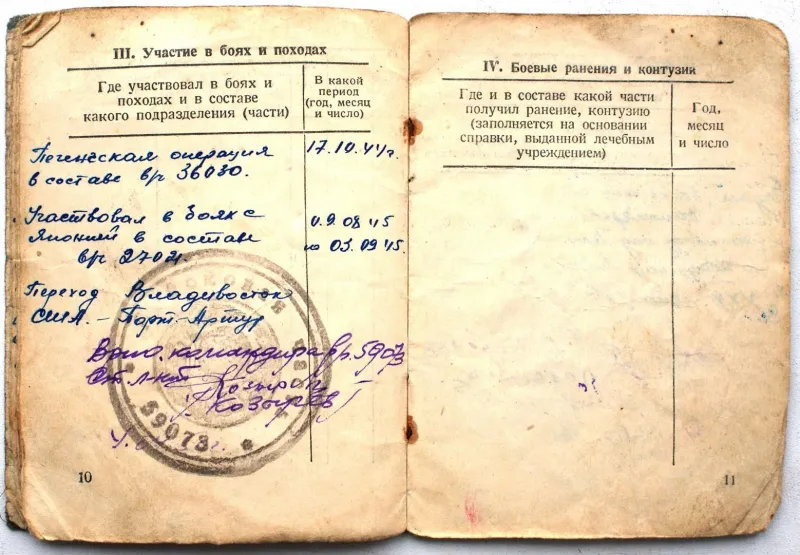 III. Участие в боях и походах
Где участвовал в боях и
походах и в составе
какого подразделения (части)
В какой
период
(год, месяц
и число)
Печенгская операция
в составе в/ч 36030.
17.10.44г.
Участвовал в боях с
Японией в составе
в/ч 27021.
с 9.08.45
по 03.09.45.
Переход Владивосток
США - Порт-Артур
Врио. командира в/ч 59073
Ст. л-нт
Козырев
59073
10
IV. Боевые ранения и контузии
Где и в составе какой части
получил ранение, контузию
(заполняется на основании
справки, выданной лечебным
учреждением)
Год,
месяц
и число
11